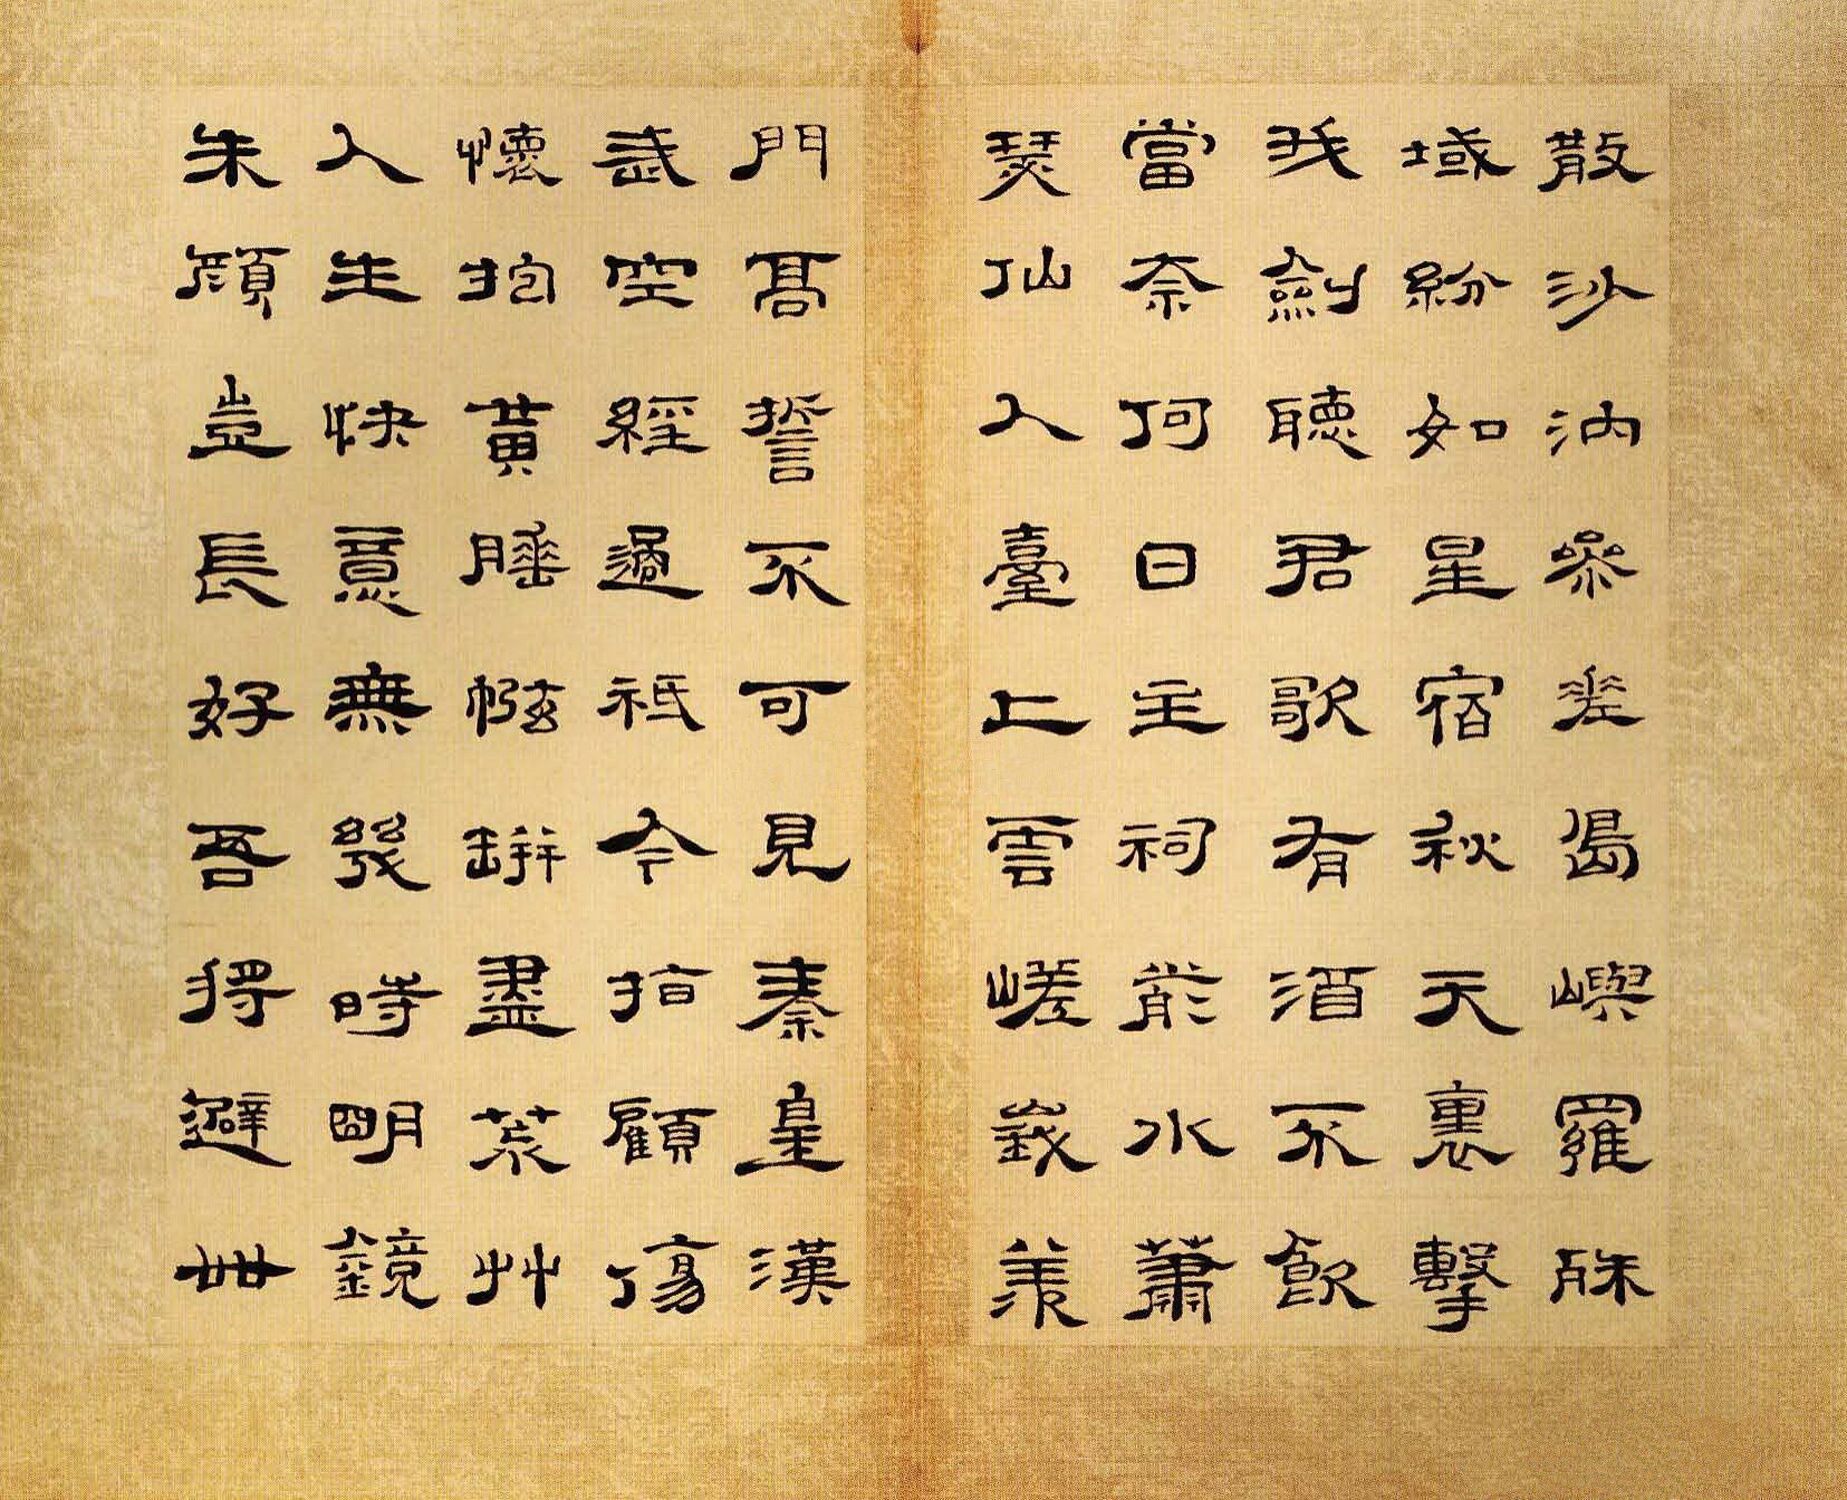 散沙汭參差島嶼羅殊
域紛如星宿秋天裏擊
我劍聽君歌有酒不飲
當奈何日主祠前水蕭
瑟仙人臺上雲嵯峨羨
門高誓不可見秦皇漢
武空經過祇今指顧傷
懷抱黃腄㡉缾盡荒艸
人生快意無幾時朙鏡
朱顏豈長好吾得避世